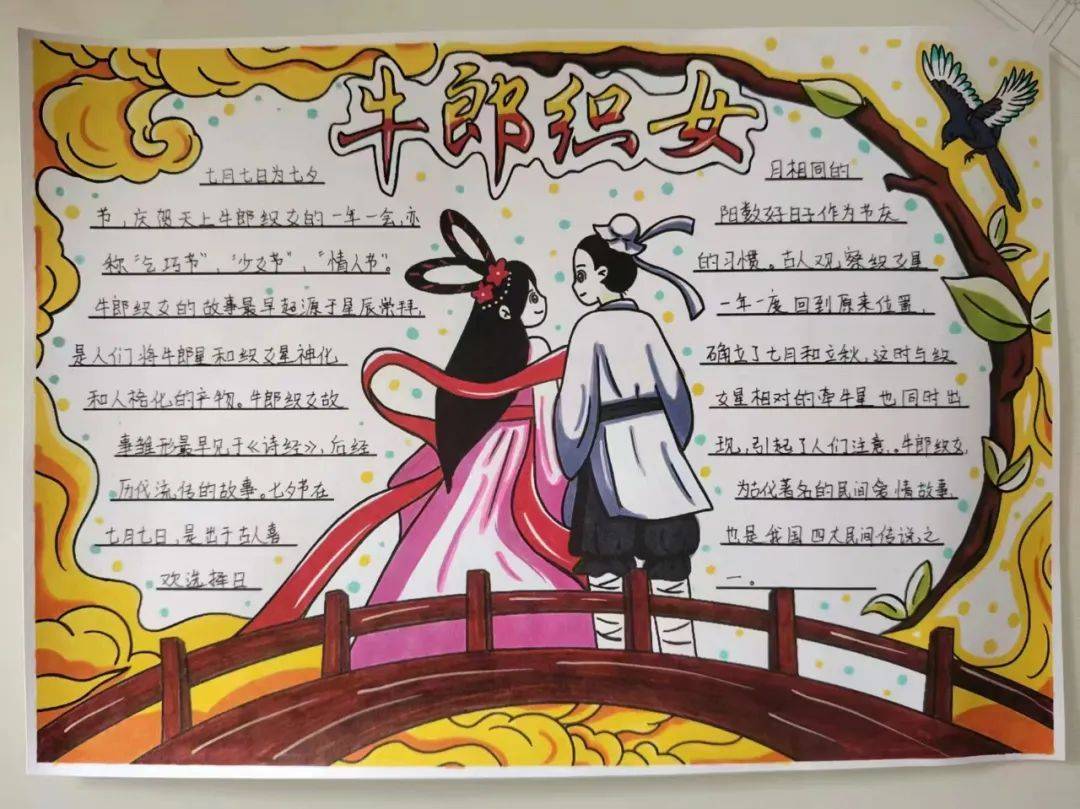 牛郎织女
七月七日为七夕
节，庆贺天上牛郎织女的一年一会，亦
称“乞巧节”，“少女节”，“情人节”。
牛郎织女的故事最早起源于星辰崇拜，
是人们将牛郎星和织女星神化
和人格化的产物。牛郎织女故
事雏形最早见于《诗经》，后经
历代流传的故事。七夕节在
七月七日，是出于古人喜
欢选择日
月相同的
阳数好日子作为节庆
的习惯。古人观察织女星
一年一度回到原来位置，
确立了七月和立秋，这时与织
女星相对的牵牛星也同时出
现，引起了人们注意。牛郎织女，
为古代著名的民间爱情故事，
也是我国四大民间传说之
一。